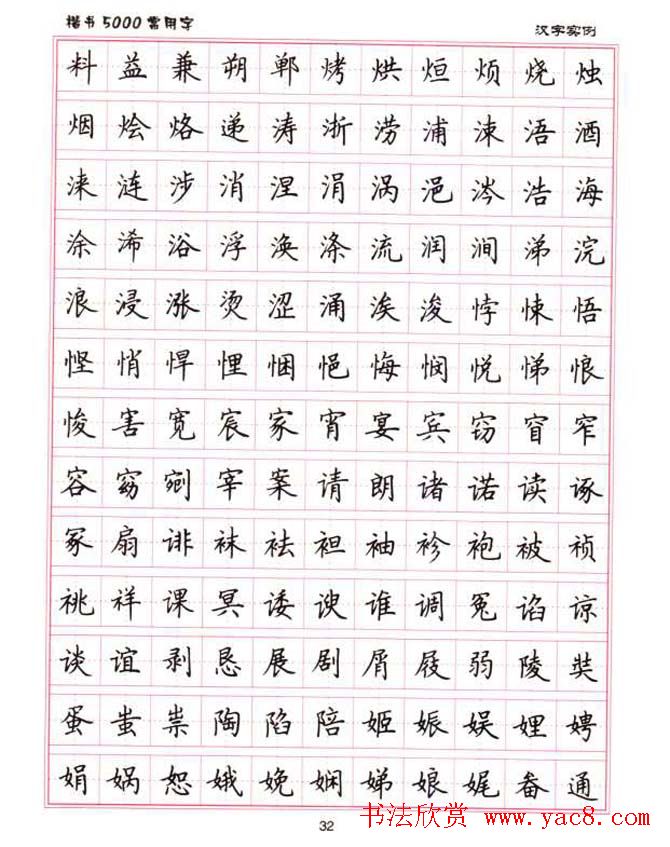 楷书5000常用字 汉字实例
料益兼朔郸烤烘烜烦烧烛
烟烩烙递涛浙涝浦涑浯酒
涞涟涉消涅涓涡浥涔浩海
涂浠浴浮涣涤流润涧涕浣
浪浸涨烫涩涌涘浚悖悚悟
悭悄悍悝悃悒悔悯悦悌悢
悛害宽宸家宵宴宾窃窅窄
容窈剜宰案请朗诸诺读诼
冢扇诽袜袪袒袖袗袍被祯
祧祥课冥诿谀谁调冤谄谅
谈谊剥恳展剧屑屐弱陵奘
蛋蚩祟陶陷陪姬娠娱娌娉
娟娲恕娥娩娴娣娘娓畚通
书法欣赏 www.yac8.com
32